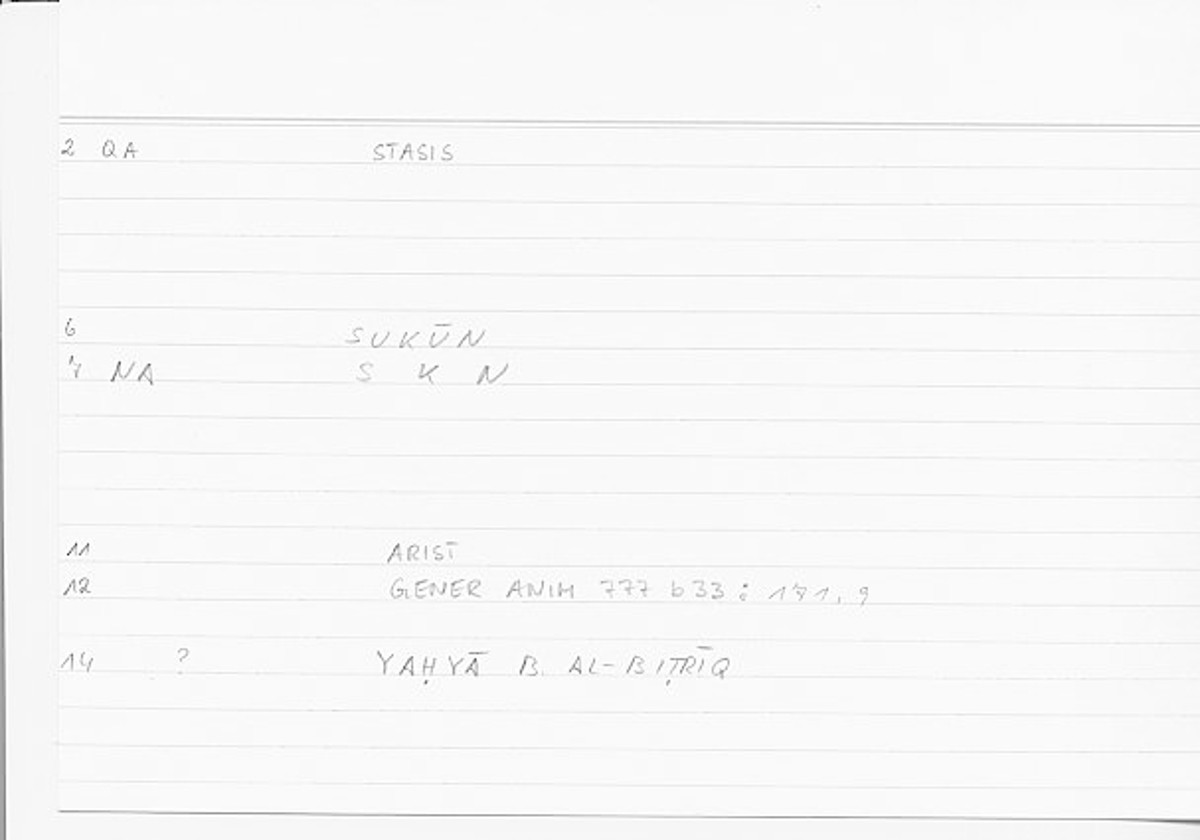 2 QA STASIS
6 SUKŪN
7 NA S K N
11 ARIST
12 GENER ANIM 777 b 33 : 171, 9
14 ? YAḤYĀ B. AL-BIṬRĪQ